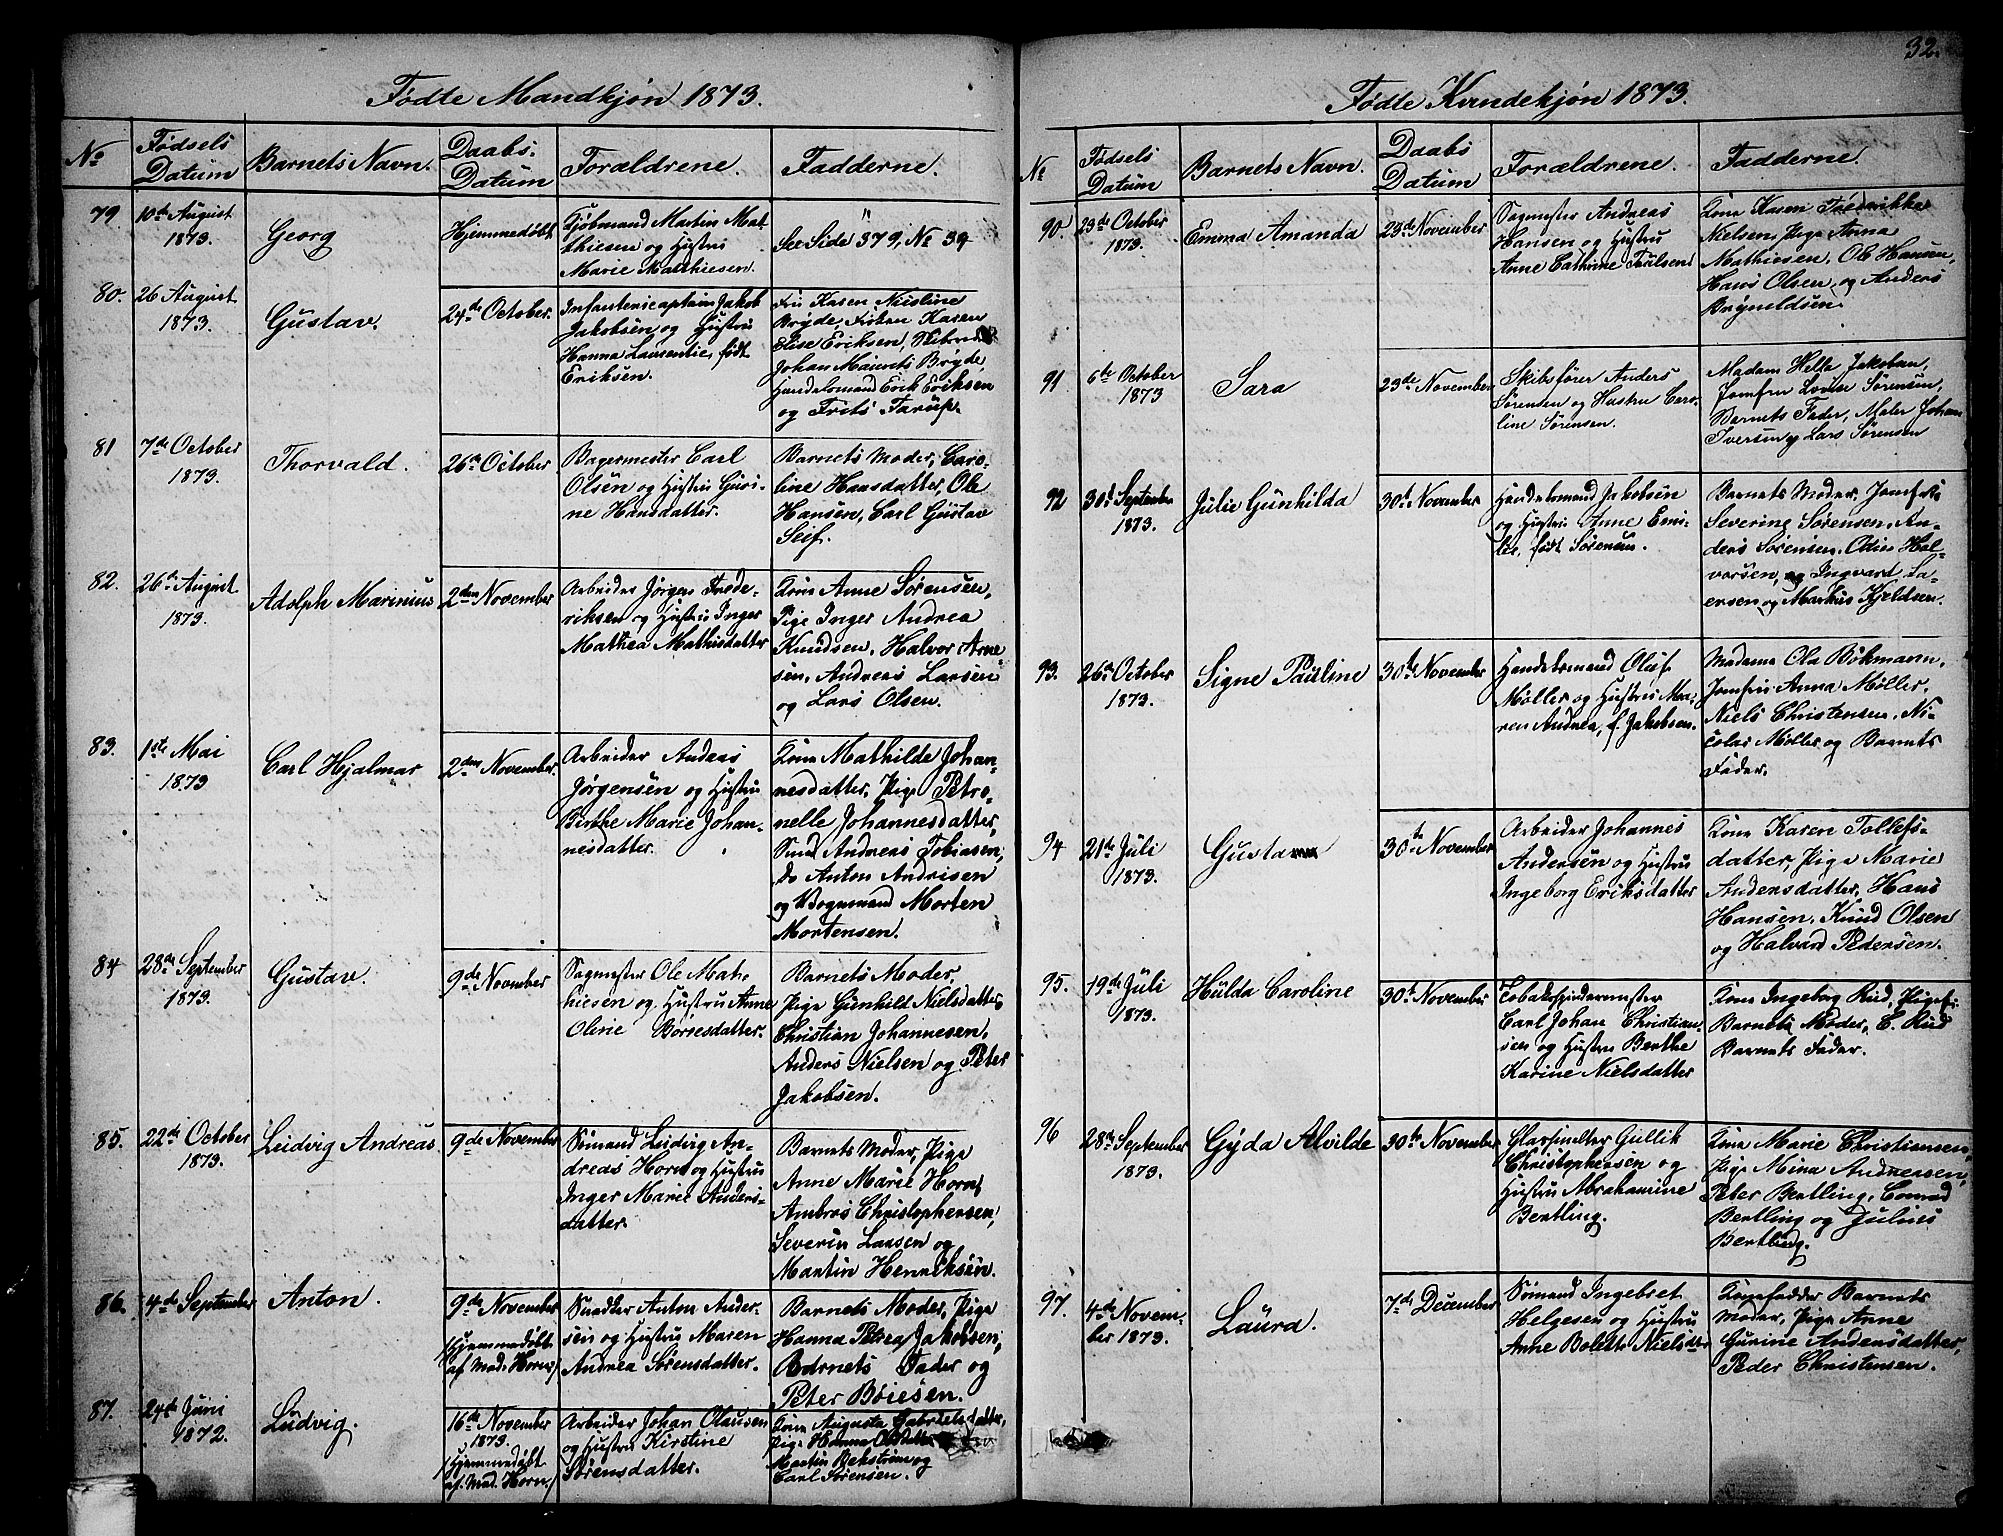 32.
Fødte Mandkjøn 1873.
No
Fødsels Datum
Barnets Navn.
Daabs. Datum
Forældrene.
Fadderne.
79
10de August
1873.
Georg
Hjemmedøbt
Kjøbmand Martin Mat-
thiesen og Hustru
Marie Matthiesen.
See Side 379, No 39
80.
26 August
1873.
Gustav.
24de October.
Infantericaptain Jakob
Jakobsen og Hustru
Hanna Laurentie, født
Eriksen.
Fru Karen Nicoline
Bryde, Frøken Karen
Elise Eriksen,
Johan Maurits Bryde,
Handelsmand Erik Eriksen
og Frits Tarup.
81
7de October
1873.
Thorvald.
26de October
Bagermester Carl
Olsen og Hustru Guri-
ne Hansdatter.
Barnets Moder, Caro-
line Hansdatter, Ole
Hansen, Carl Gustav
Seif.
82.
26de August
1873.
Adolph Marinius
2den November
Arbeider Jørgen Frede-
riksen og Hustru Inger
Mathea Mathisdatter
Kone Anne Sørensen,
Pige Inger Andrea
Knudsen, Halvor Arne-
sen, Andreas Larsen
og Lars Olsen.
83.
1ste Mai
1873
Carl Hjalmar
2den November.
Arbeider Andreas
Jørgensen og Hustru
Birthe Marie Johan-
nesdatter.
Kone Mathilde Johan-
nesdatter, Pige Petro-
nelle Johannesdatter,
Smed Andreas Tobiasen,
do Anton Andrisen
og Vognmand Morten
Mortensen.
84
28de September
1873.
Gustav.
9de November
Sagmester Ole Mat-
hiesen og Hustru Anne
Oline Børresdatter.
Barnets Moder
Pige Gunhild Nielsdatter
Christian Johannesen,
Anders Nielsen og Peter
Jakobsen.
85.
22de October
1873.
Ludvig Andreas.
9de November
Sømand Ludvig An-
dreas Horn og Hustru
Inger Marie Anders-
datter.
Barnets Moder, Pige
Anne Marie Horn,
Ambros Christophersen,
Severin Larsen og
Martin Henriksen.
86.
4de September
Anton.
9de November
/Hjemmedøbt
af Mad. Horn/
Snedker Anton Ander-
sen og Hustru Maren
Andrea Sørensdatter.
Barnets Moder, Pige
Hanna Petra Jakobsen,
Barnets Fader og
Peter Boiesen.
87.
24de Juni
1872.
Ludvig.
16de November
1873.
/Hjemmedøbt
af Mad. Horn/
Arbeider Johan Olausen
og Hustru Kirstine
Sørensdatter.
Kone Augusta Gabrielsdatter,
Pige Hanna
Martin Bekstrøm og
Carl Sørensen.
Fødte Kvindekjøn 1873.
No
Fødsels Datum
Barnets Navn.
Daabs Datum
Forældrene.
Fadderne.
90.
23de October
1873.
Emma Amanda
23de November
Sagmester Andreas
Hansen og Hustru
Anne Cathrine Paulsen
Kone Karen Frederikke
Nielsen, Pige Anna
Mathiesen, Ole Hansen,
Hans Olsen, og Anders
Bryneldsen.
91
6te October
1873
Sara
23de November
Skibsfører Anders
Sørensen og Hustru Caro-
line Sørensen.
Madam Helle Jakobsen,
Jomfru Lovise Sørensen,
Barnets Fader, Maler Johan
Iversen og Lars Sørensen
92
30te September
1873.
Julie Gunhilda
30te November
Handelsmand Jakobsen
og Hustru Anne Emi-
lie, født Sørensen.
Barnets Moder, Jomfru
Severine Sørensen, An-
ders Sørensen, Odin Hal-
vorsen, og Ingvart La-
ersen og Markus Kjeldsen.
93.
26de October
1873.
Signe Pauline
30te November
Handelsmand Oluf
Møller og Hustru Ma-
ren Andrea, f. Jakobsen.
Madame Ola Bøkmann,
Jomfru Anna Møller,
Niels Christensen, Ni-
colai Møller og Barnets
Fader.
94
21de Juli
1873.
Gusta
30te November
Arbeider Johannes
Andersen og Hustru
Ingeborg Eriksdatter
Kone Karen Tollefs-
datter, Pige Marie
Andersdatter, Hans
Hansen, Knud Olsen
og Halvard Pedersen.
95.
19de Juli
1873.
Hulda Caroline
30te November
Tobakspindermester
Carl Johan Christian-
sen og Hustru Berthe
Karine Nielsdatter
Kone Ingeborg Rud,
Barnets Moder, C. Rud
Barnets Fader.
96
28de September
1873.
Gyda Alvilde
30te November
Glassmelter Gullik
Christophersen og
Hustru Abrahamine
Bertling.
Kone Marie Christiansen,
Pige Mina Andreesen,
Peter Bertling, Conrad
Bertling og Julius
Bertling.
97.
4de Novem-
ber 1873.
Laura.
7de December
Sømand Ingebret
Helgesen og Hustru
Anne Bolette Nielsdtr
Kone fadder Barnets
Moder, Pige Anne
Gurine Andersdatter,
Peder Christensen.